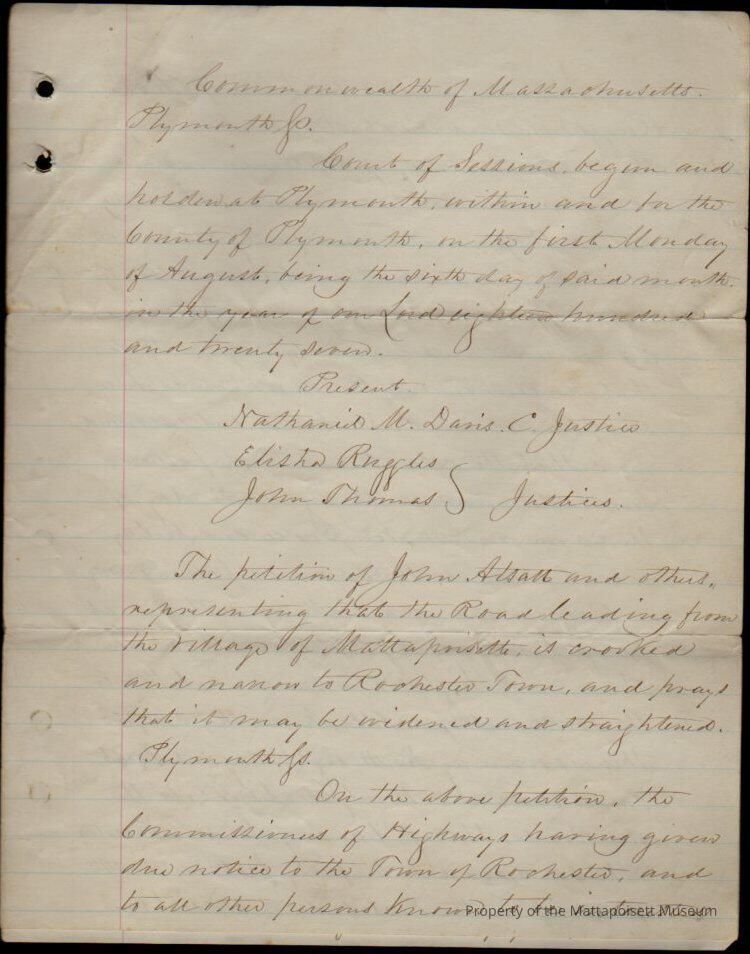 Commonwealth of Massachusetts.
Plymouth Ss.
Court of Sessions, begun and
holden at Plymouth, within and for the
County of Plymouth, on the first Monday
of August, being the sixth day of said month.
in the year of our Lord eighteen hundred
and twenty seven.
Present.
Nathaniel M. Davis. C. Justice
Elisha Ruggles
John Thomas } Justices.
The petition of John Atsatt and others,
representing that the Road leading from
the village of Mattapoisett, is crooked
and narrow to Rochester Town, and prays
that it may be widened and straightened.
Plymouth Ss.
On the above petition, the
Commissioners of Highways having given
due notice to the Town of Rochester, and
to all other persons known to be interested
Property of the Mattapoisett Museum